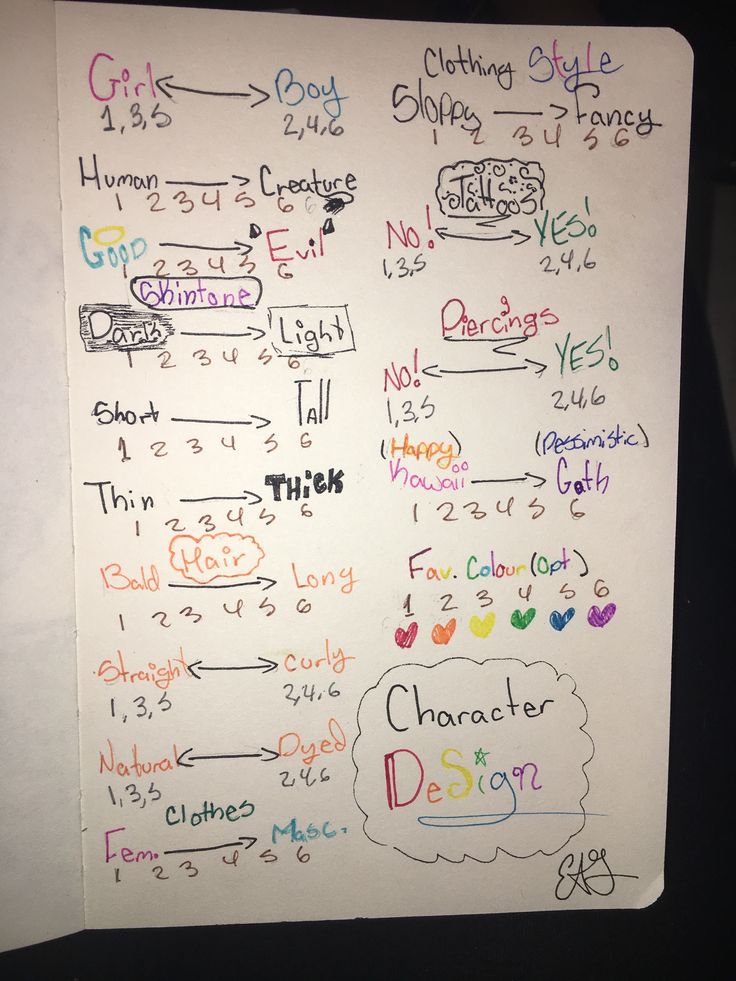 Girl ⟷ Boy
1,3,5 2,4,6
Human ⟶ Creature
1 2 3 4 5 6 6
Good ⟶ "Evil"
1 2 3 4 5 6
Skintone
Dark ⟶ Light
1 2 3 4 5 6
Short ⟶ Tall
1 2 3 4 5 6
Thin ⟶ THICK
1 2 3 4 5 6
Hair
Bald ⟶ Long
1 2 3 4 5 6
Straight ⟷ Curly
1,3,5 2,4,6
Natural ⟷ Dyed
1,3,5 2,4,6
Clothes
Fem. ⟶ Masc.
1 2 3 4 5 6
Clothing Style
Sloppy ⟶ Fancy
1 2 3 4 5 6
Tattoos
NO! ⟷ YES!
1,3,5 2,4,6
Piercings
NO! ⟷ YES!
1,3,5 2,4,6
(Happy) (Pessimistic)
Kawaii ⟶ Goth
1 2 3 4 5 6
Fav. Colour (opt)
1 2 3 4 5 6
Character
DeSign
EAG